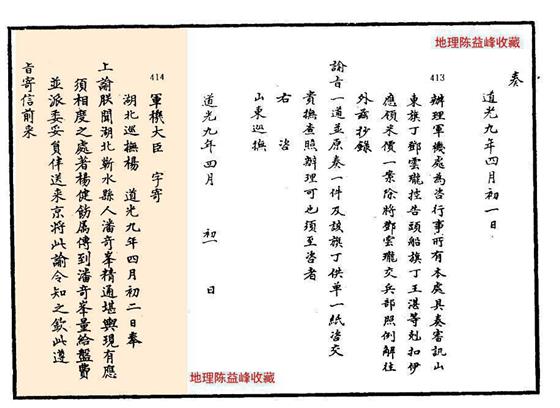 地理陈益峰收藏
奏
道光九年四月初一日
413
辦理軍機處為咨行事所有本處具奏審訊山
東旗丁鄧雲瓏控告頭船旗丁王湛等剋扣伊
應領米價一案除將鄧雲瓏交兵部照例解往
外茲抄錄
諭旨一道並原奏一件及該旗丁供單一紙咨交
貴撫查照辦理可也須至咨者
右 咨
山東巡撫
道光九年四月 初一 日
414
軍機大臣 字寄
湖北巡撫楊 道光九年四月初二日奉
上諭朕聞湖北蘄水縣人潘奇峯精通堪輿現有應
須相度之處著楊健飭屬傳到潘奇峯量給盤費
並派委妥員伴送來京將此諭令知之欽此遵
旨寄信前來
地理陈益峰收藏